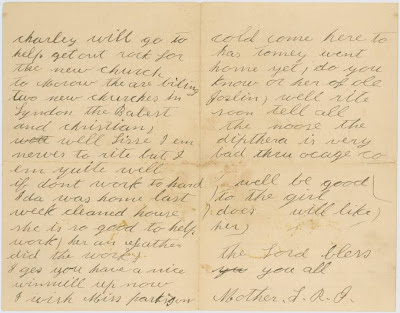 charley will go to
help get out rock for
the new church
to morow the are biling
two new churches in
Lyndon the Babtst
and christian,
well Lisse I em
nevves to rite but I
em quite well
if dont work to hard
Ida was home last
week cleaned house
she is so good to help
work, her an father
did the work,
I ges you have a nice
winmill up now
I wish Miss
cold come here to
has tomey went
home yet, do you
know of her of ole
Joslin, well rite
soon tell all
the noose the
dipthera is very
bad thru ocage co
well be good
to the girl
does will like,
her,
the Lord bless
you all
Mother,